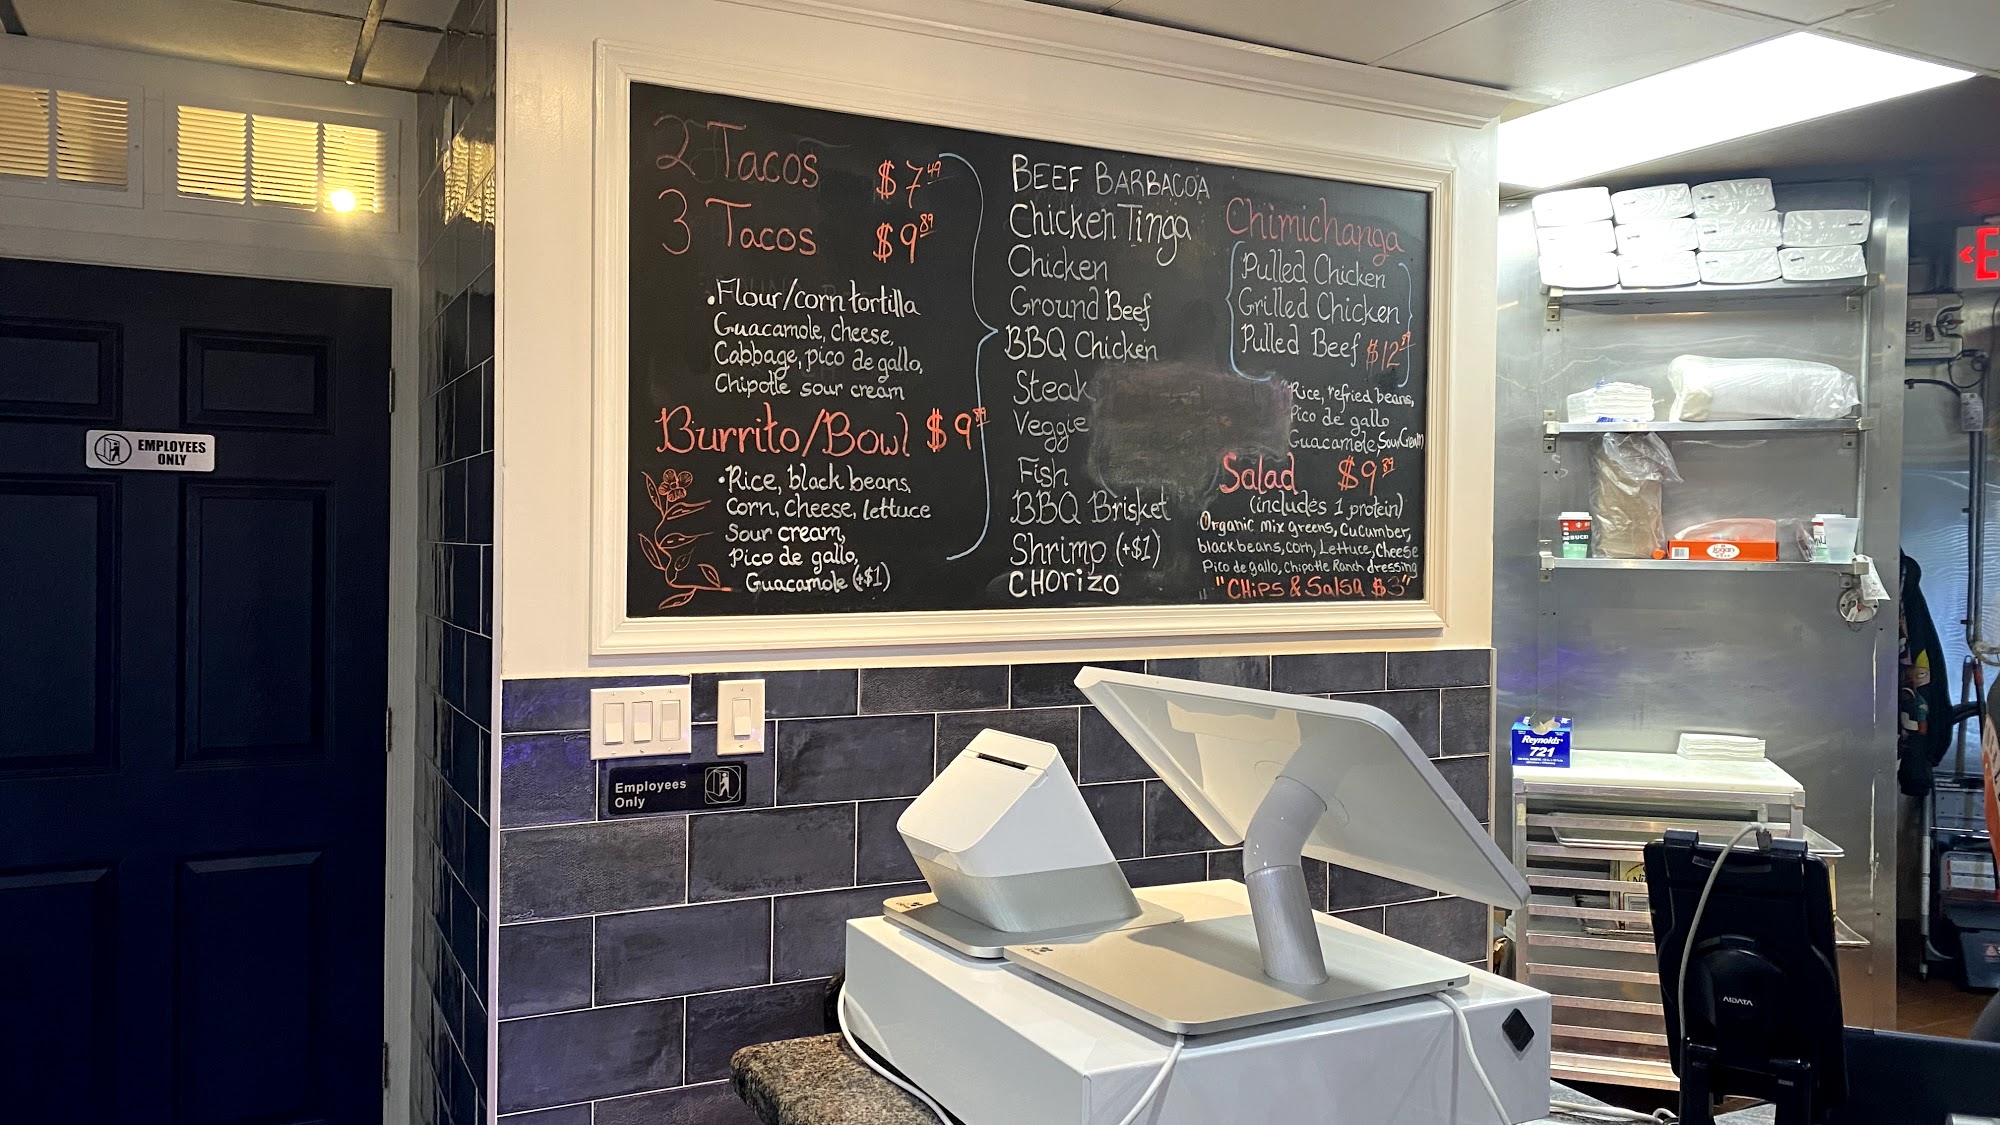 2 Tacos $7.49
3 Tacos $9.89
•Flour/corn tortilla
Guacamole, cheese,
Cabbage, pico de gallo,
Chipotle sour cream
Burrito/Bowl $9.89
•Rice, black beans,
Corn, cheese, lettuce
Sour cream,
Pico de gallo,
Guacamole (+$1)
BEEF BARBACOA
Chicken Tinga
Chicken
Ground Beef
BBQ Chicken
Steak
Veggie
Fish
BBQ Brisket
Shrimp (+$1)
CHORIZO
Chimichanga
Pulled Chicken
Grilled Chicken
Pulled Beef $12
Rice, refried beans,
Pico de gallo
Guacamole, Sour Cream
Salad $9.89
(includes 1 protein)
Organic mix greens, Cucumber,
black beans, corn, Lettuce, Cheese
Pico de gallo, Chipotle Ranch dressing
"CHiPS & SalSa $3"
EMPLOYEES
ONLY
Employees
Only
Reynolds
721
Logan
AIDATA